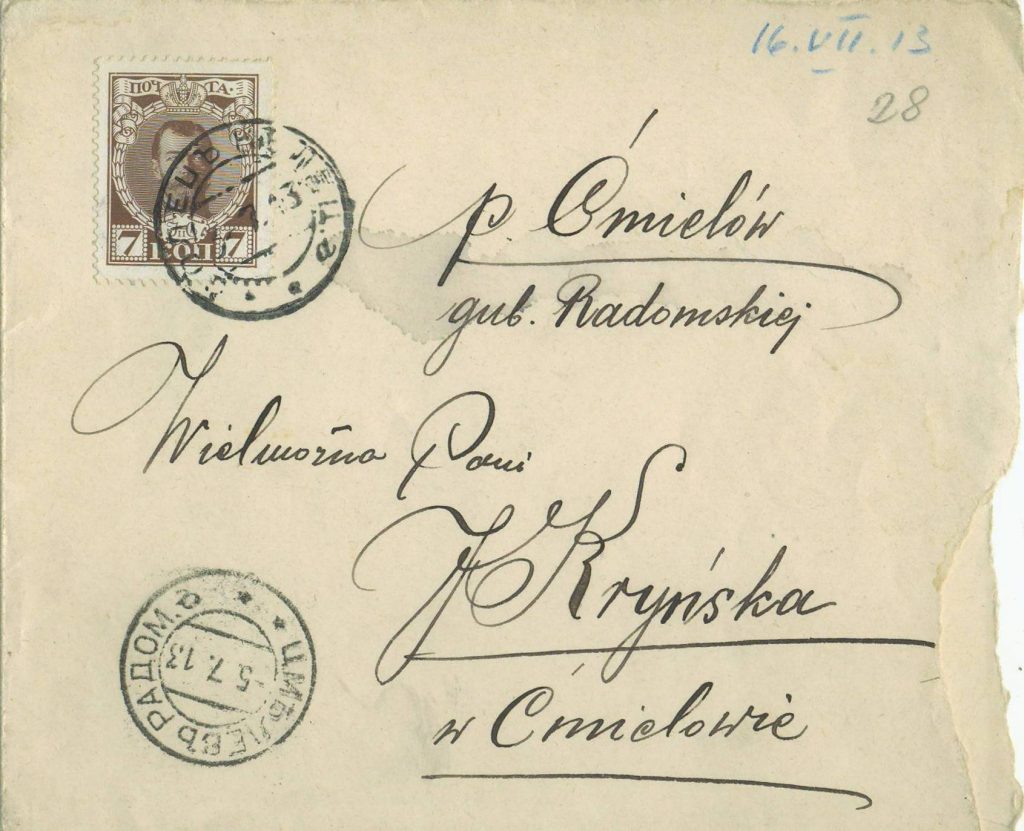 16.VII.13
28
ПОЧТА.
7 КОП 7
p. Ćmielów
gub. Radomskiej
Wielmożna Pani
J Kryńska
w Ćmielowie
ЦМѢЛЕВЪ РАДОМ.
-5.7.13